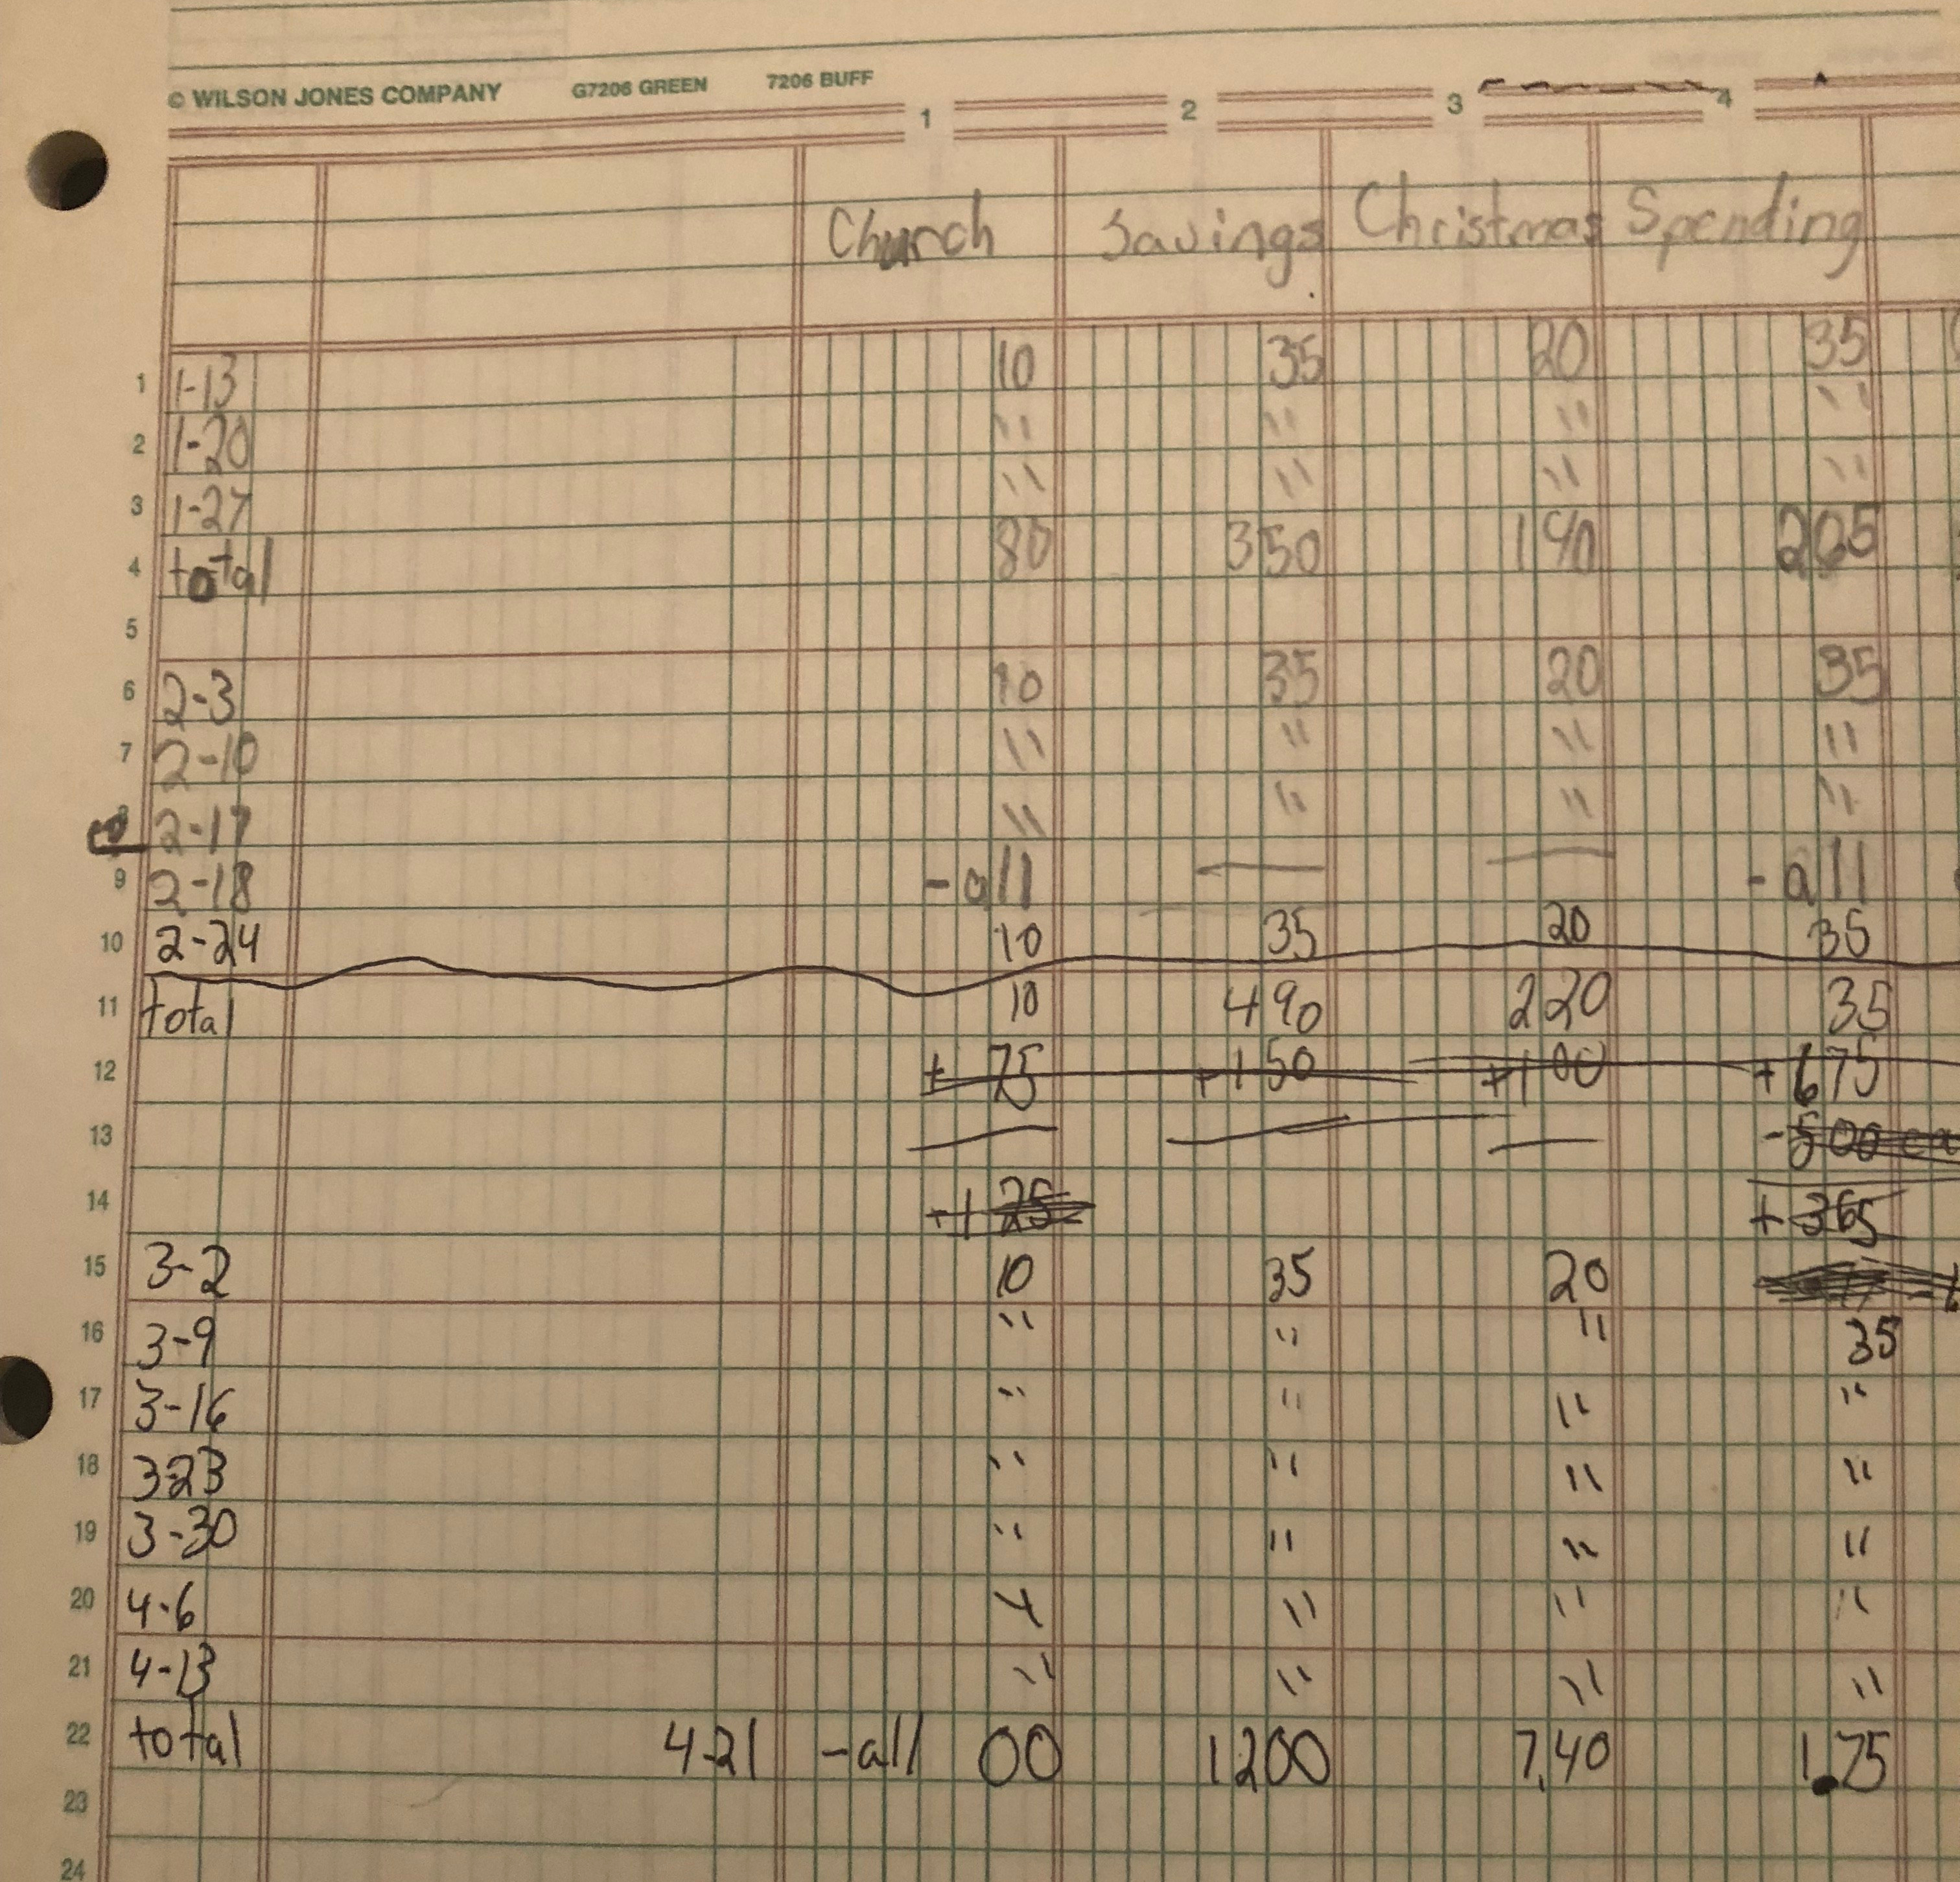 © WILSON JONES COMPANY G7206 GREEN 7206 BUFF
1 2 3 4
Church Savings Christmas Spending
1 1-13 10 35 20 35
2 1-20 " " " "
3 1-27 " " " "
4 total 80 350 140 265
5
6 2-3 10 35 20 35
7 2-10 " " " "
2-17 " " " "
9 2-18 -all — — -all
10 2-24 10 35 20 35
11 total 10 490 220 35
12 + 75 +150 +100 +675
13 -500
14 +125 +365
15 3-2 10 35 20
16 3-9 " " " 35
17 3-16 " " " "
18 3-23 " " " "
19 3-30 " " " "
20 4-6 " " " "
21 4-13 " " " "
22 total 4-21 -all 00 1200 7,40 1.75
23
24